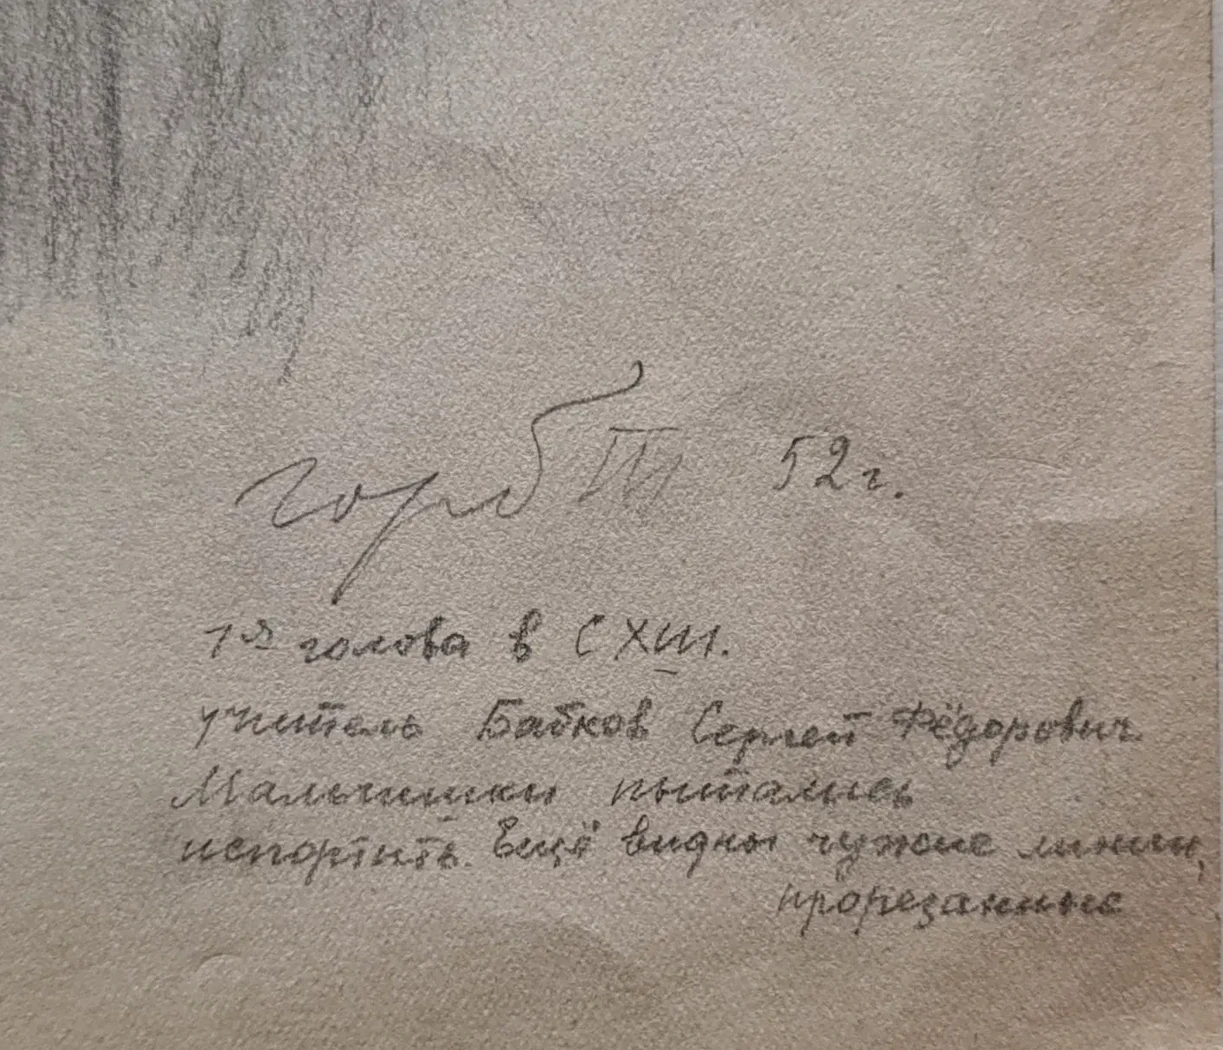 горб III 52 г.
1я голова в СХШ.
учитель Бабков Сергей Фёдорович
Мальчишки пытались
испортить. Ещё видны чужие линии,
прорезанные